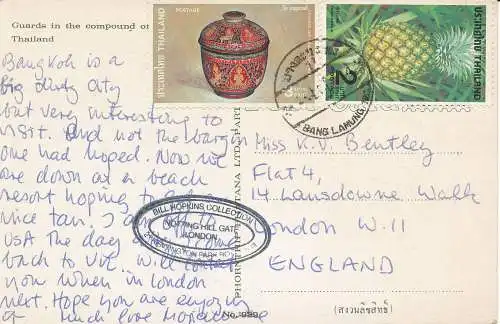 Guards in the compound of
Thailand
POSTAGE
ประเทศไทย THAILAND
ประเทศไทย THAILAND
2
BANG LAMUNG
Bangkok is a
big dirty city
but very interesting to
visit. And not the bargain
one had hoped. Now we
are down at a beach
resort hoping to get a
nice tan. I am off to
USA the day
back to UK. Will contact
you when in London
next. Hope you are enjoying
Much love
BILL HOPKINS COLLECTION
NOTTING HILL GATE
LONDON
KENSINGTON PARK RD
Miss K.V. Bentley
Flat 4,
14 Lansdowne Walk
London W.11
ENGLAND
(สงวนลิขสิทธิ์)
No. 989